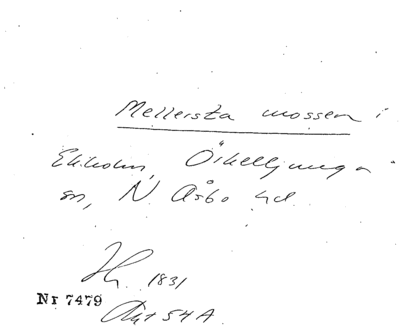 Mellersta mossen i
Ekholm, Örkelljunga
sn, N. Åsbo hd.
Hy. 1831
Nr 7479
Akt 54A.